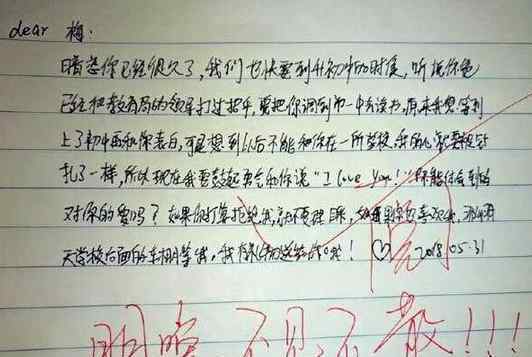 dear 梅:
暗恋你已经很久了,我们也快要到升初中的时候,听说你爸
已经和教育局的领导打过招呼,要把你调到市一中去读书,原来我想等到
上了初中再和你表白,可是想到以后不能和你在一所学校,我的心就要被针
扎了一样,所以现在我要鼓起勇气和你说"I love You!"你能体会到我
对你的爱吗?如果你打算拒绝我,就不要理我,如果你也喜欢我,那明
天学校后面的车棚等我,我 ! ♡ 2018.05.31
阅
明晚 不见不散!!!